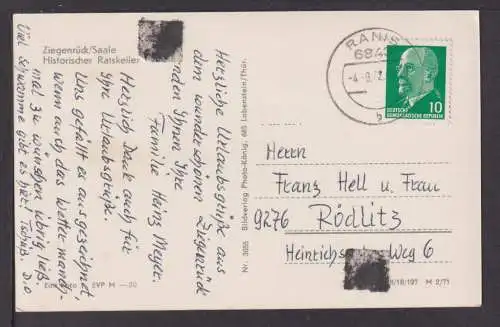 Ziegenrück/Saale
Historischer Ratskeller
Herzliche Urlaubsgrüße aus
dem wunderschönen Ziegenrück
Ihnen Ihre
Familie Heinz Meyer.
Herzlich Dank auch für
Ihre Urlaubsgrüße.
Uns gefällt es ausgezeichnet,
wenn auch das Wetter manch-
mal zu wünschen übrig ließ.
Viel Schwämme gibt es hier. D.O
Nr. 3055 Bildverlag Photo-König, 685 Lobenstein/Thür.
RANIS
684
-4.-9.72
b
10
DEUTSCHE
DEMOKRATISCHE REPUBLIK
Herrn
Franz Hell u. Frau
9276 Rödlitz
Heinrich Weg 6
EVP M -,20
/18/197 M 2/71